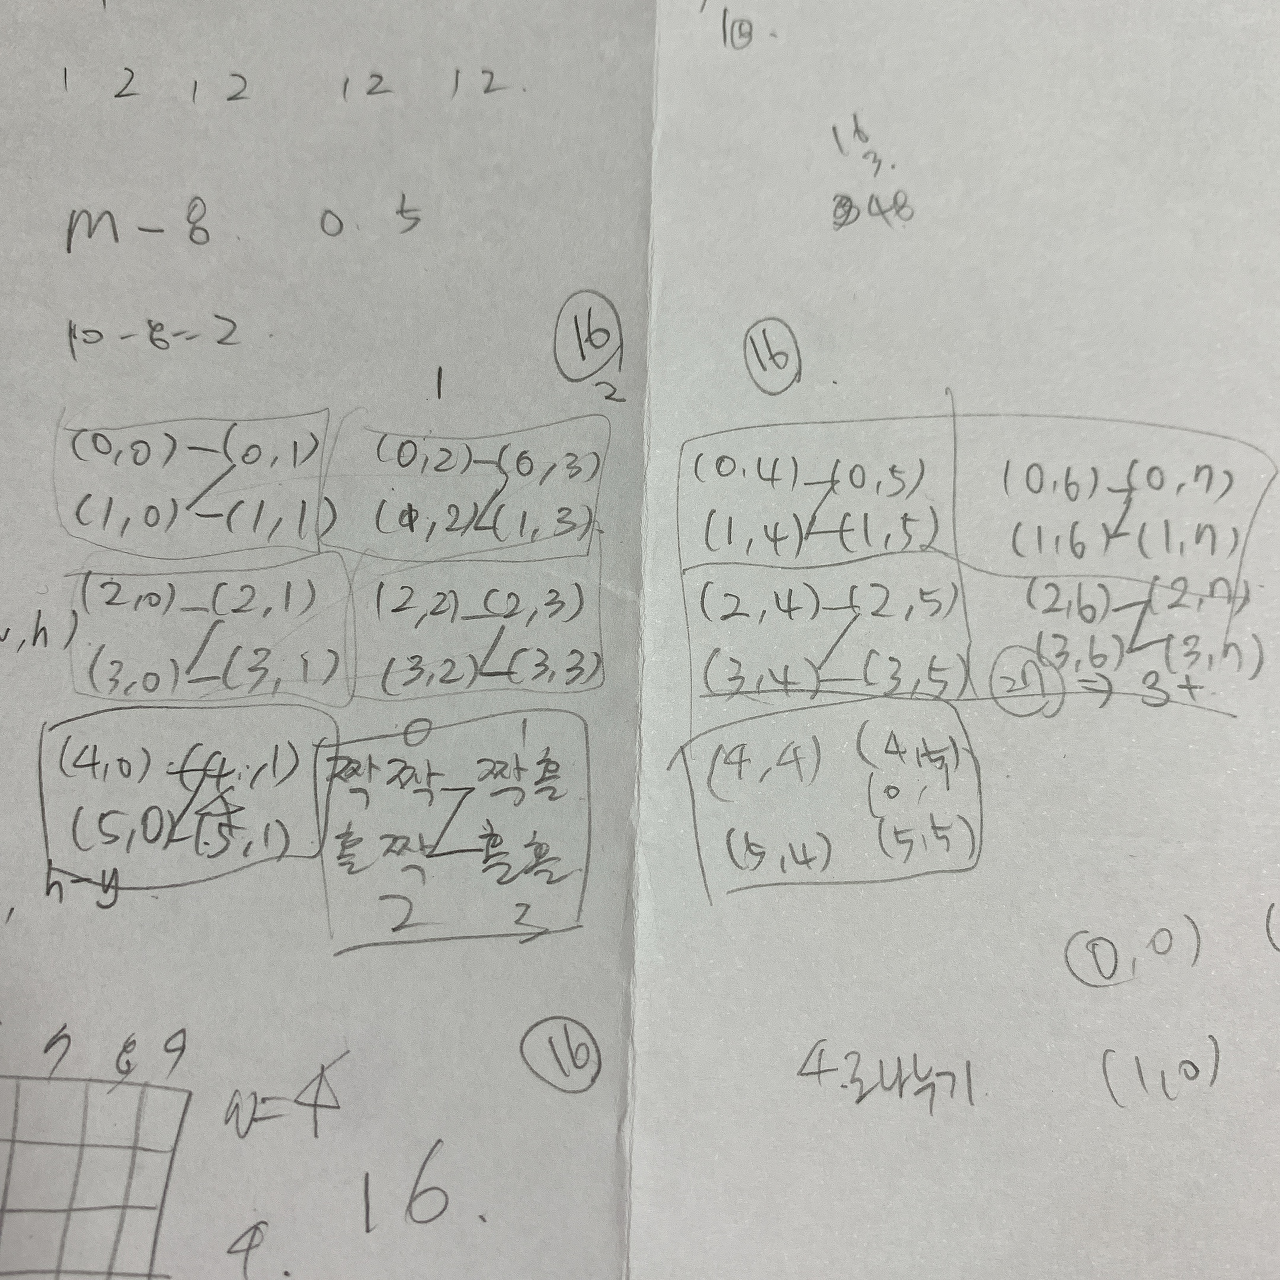 1 2 1 2 1 2 1 2.
m - 8 0. 5
10 - 8 = 2.
16
1
2
(0,0) - (0,1) (0,2) - (0,3)
(1,0) - (1,1) (1,2) - (1,3)
(2,0) - (2,1) (2,2) - (2,3)
(3,0) - (3,1) (3,2) - (3,3)
,h)
(4,0) - (4,1)
(5,0) - (5,1)
h-y
0 1
짝짝 짝홀
홀짝 홀홀
2 3
16
7 8 9
n=4
16.
4.
10.
16
3.
48
16.
(0,4) - (0,5) (0,6) - (0,7)
(1,4) - (1,5) (1,6) - (1,7)
(2,4) - (2,5) (2,6) - (2,7)
(3,4) - (3,5) (3,6) - (3,7)
27 ⇒ 3+
(4,4) (4,5)
(5,4) (5,5)
(0,0)
4로나누기 (1,0)